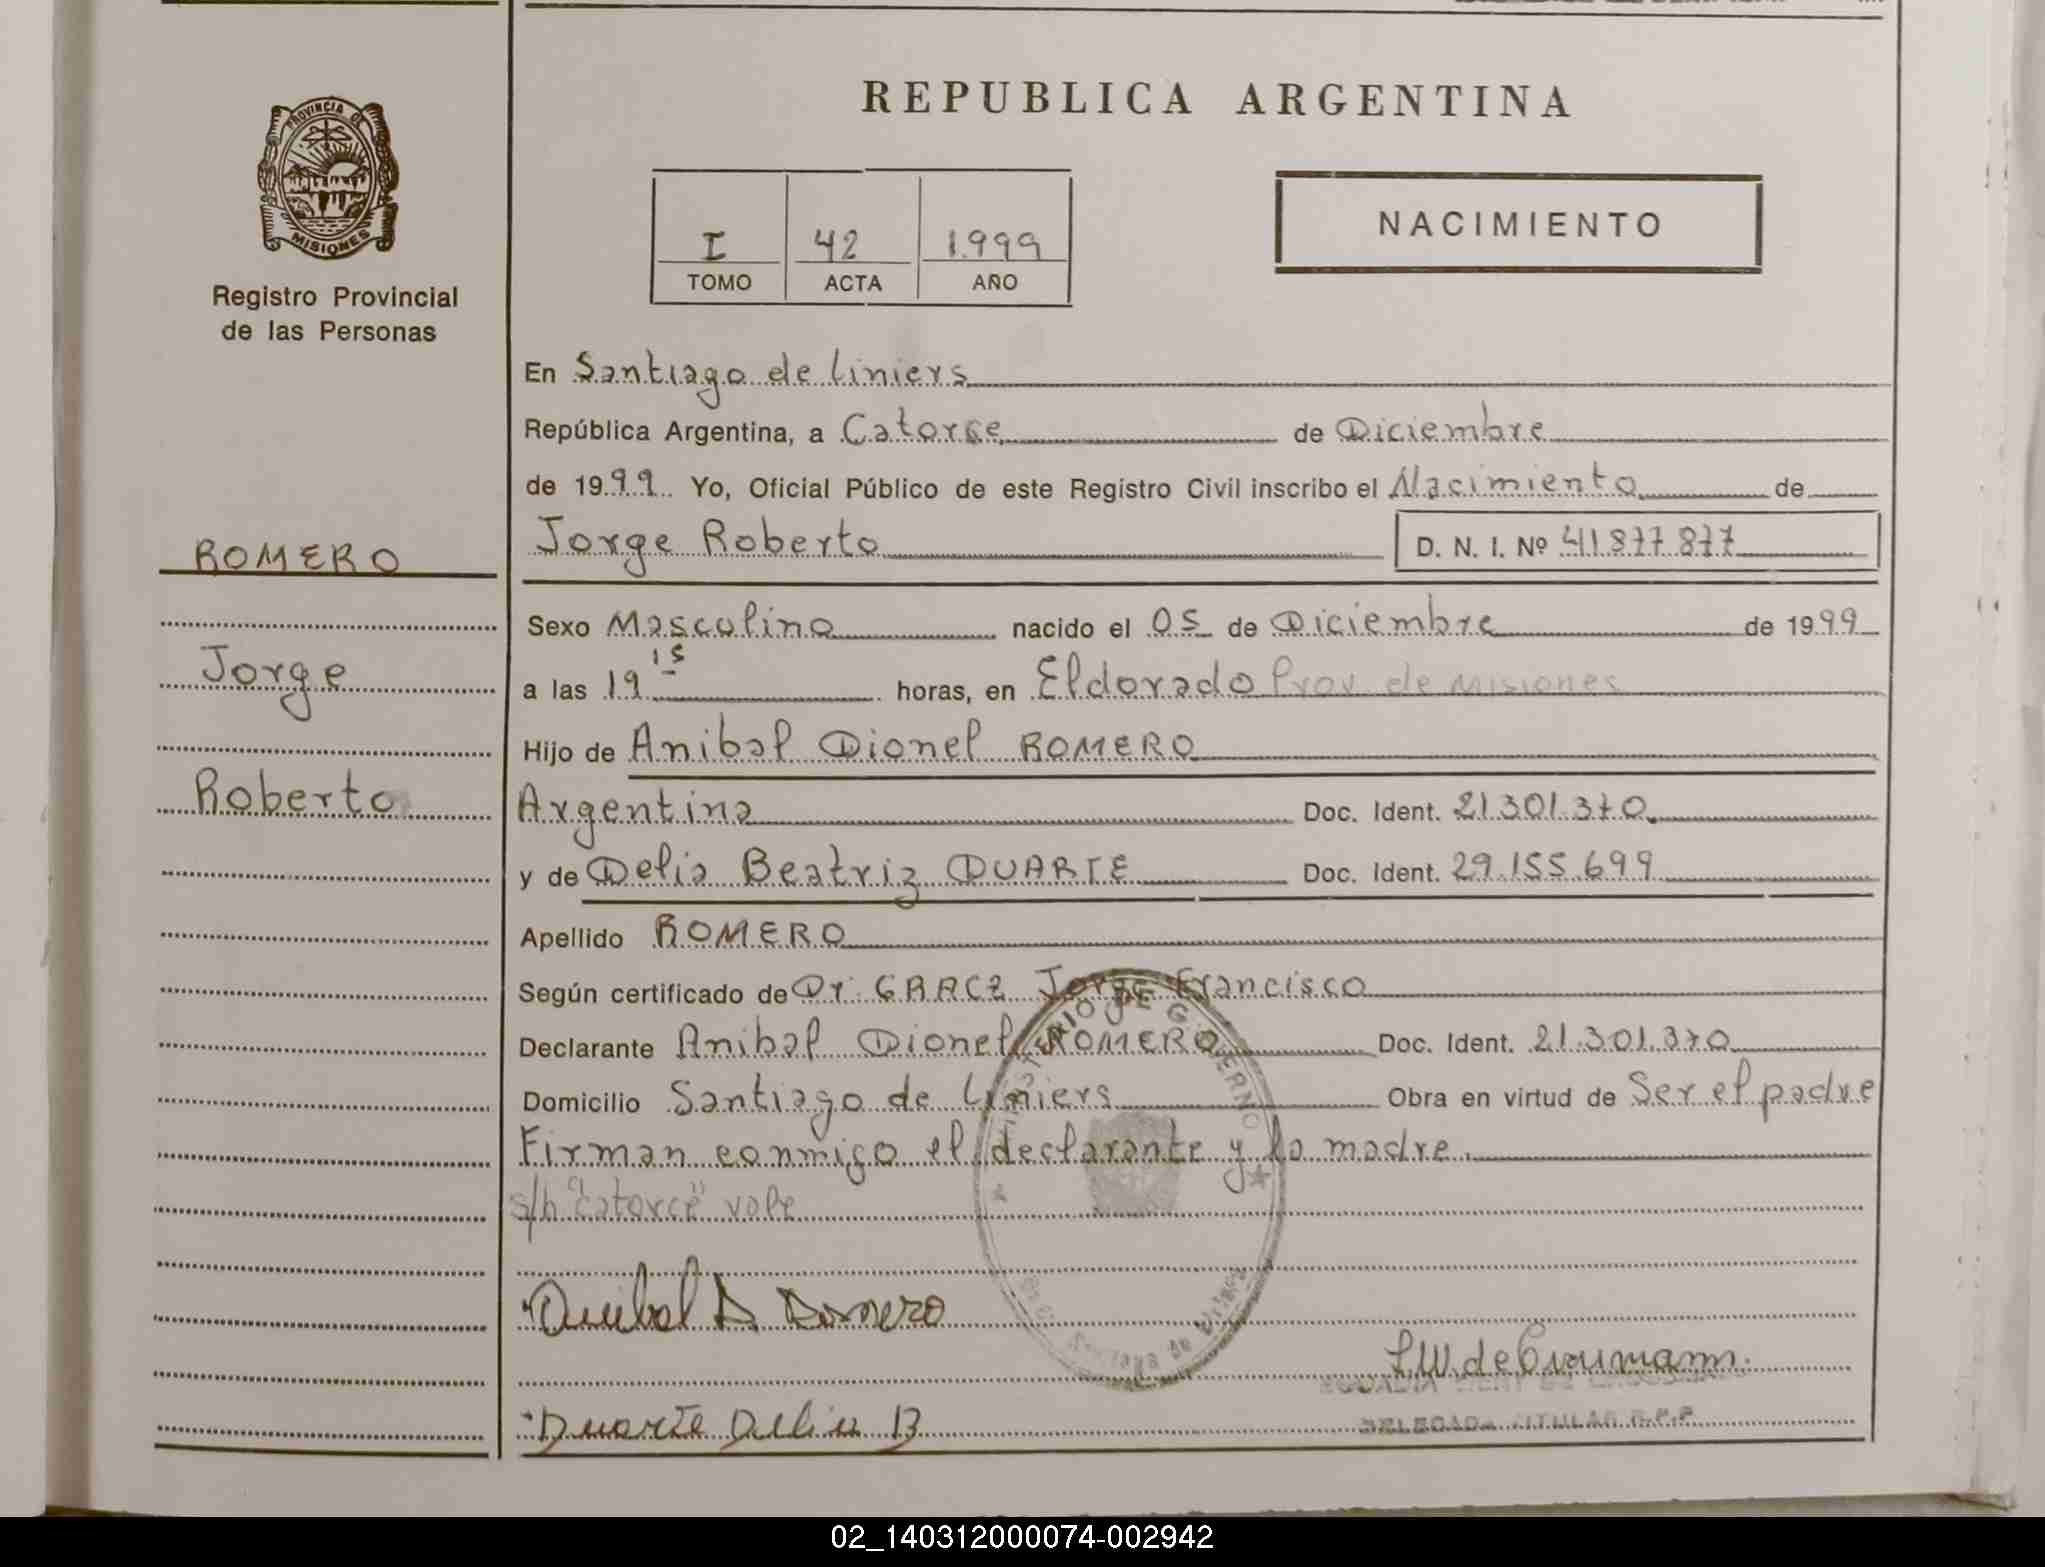 REPUBLICA ARGENTINA
PROVINCIA DE
MISIONES
Registro Provincial
de las Personas
I 42 1.999
TOMO ACTA AÑO
NACIMIENTO
ROMERO
Jorge
Roberto
En Santiago de Liniers
República Argentina, a Catorce de Diciembre
de 1999 Yo, Oficial Público de este Registro Civil inscribo el Nacimiento de
Jorge Roberto D. N. I. Nº 41877877
Sexo Masculino nacido el 05 de Diciembre de 1999
a las 19 15 horas, en Eldorado Prov. de Misiones
Hijo de Anibal Dionel ROMERO
Argentina Doc. Ident. 21.301.370
y de Delia Beatriz DUARTE Doc. Ident. 29.155.699
Apellido ROMERO
Según certificado de Dr. GRACZ Jorge Francisco
Declarante Anibal Dionel ROMERO Doc. Ident. 21.301.370
Domicilio Santiago de Liniers Obra en virtud de Ser el padre
Firman conmigo el declarante y la madre.
s/b "catorce" vale
MINISTERIO DE GOBIERNO
Santiago de Liniers
Anibal D Romero
Duarte Delia B
DELEGADA TITULAR R.P.P.
02_140312000074-002942